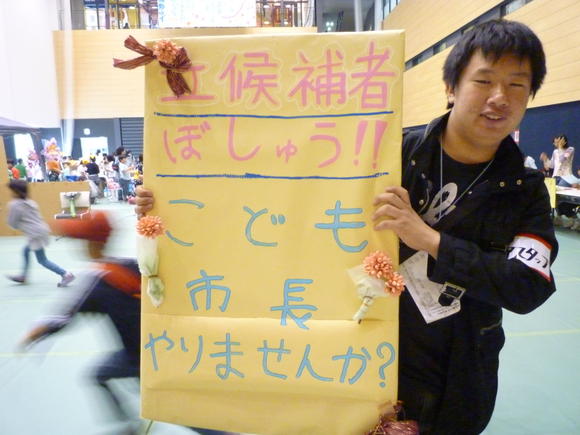 立候補者
ぼしゅう!!
こども
市長
やりませんか?
スタッフ